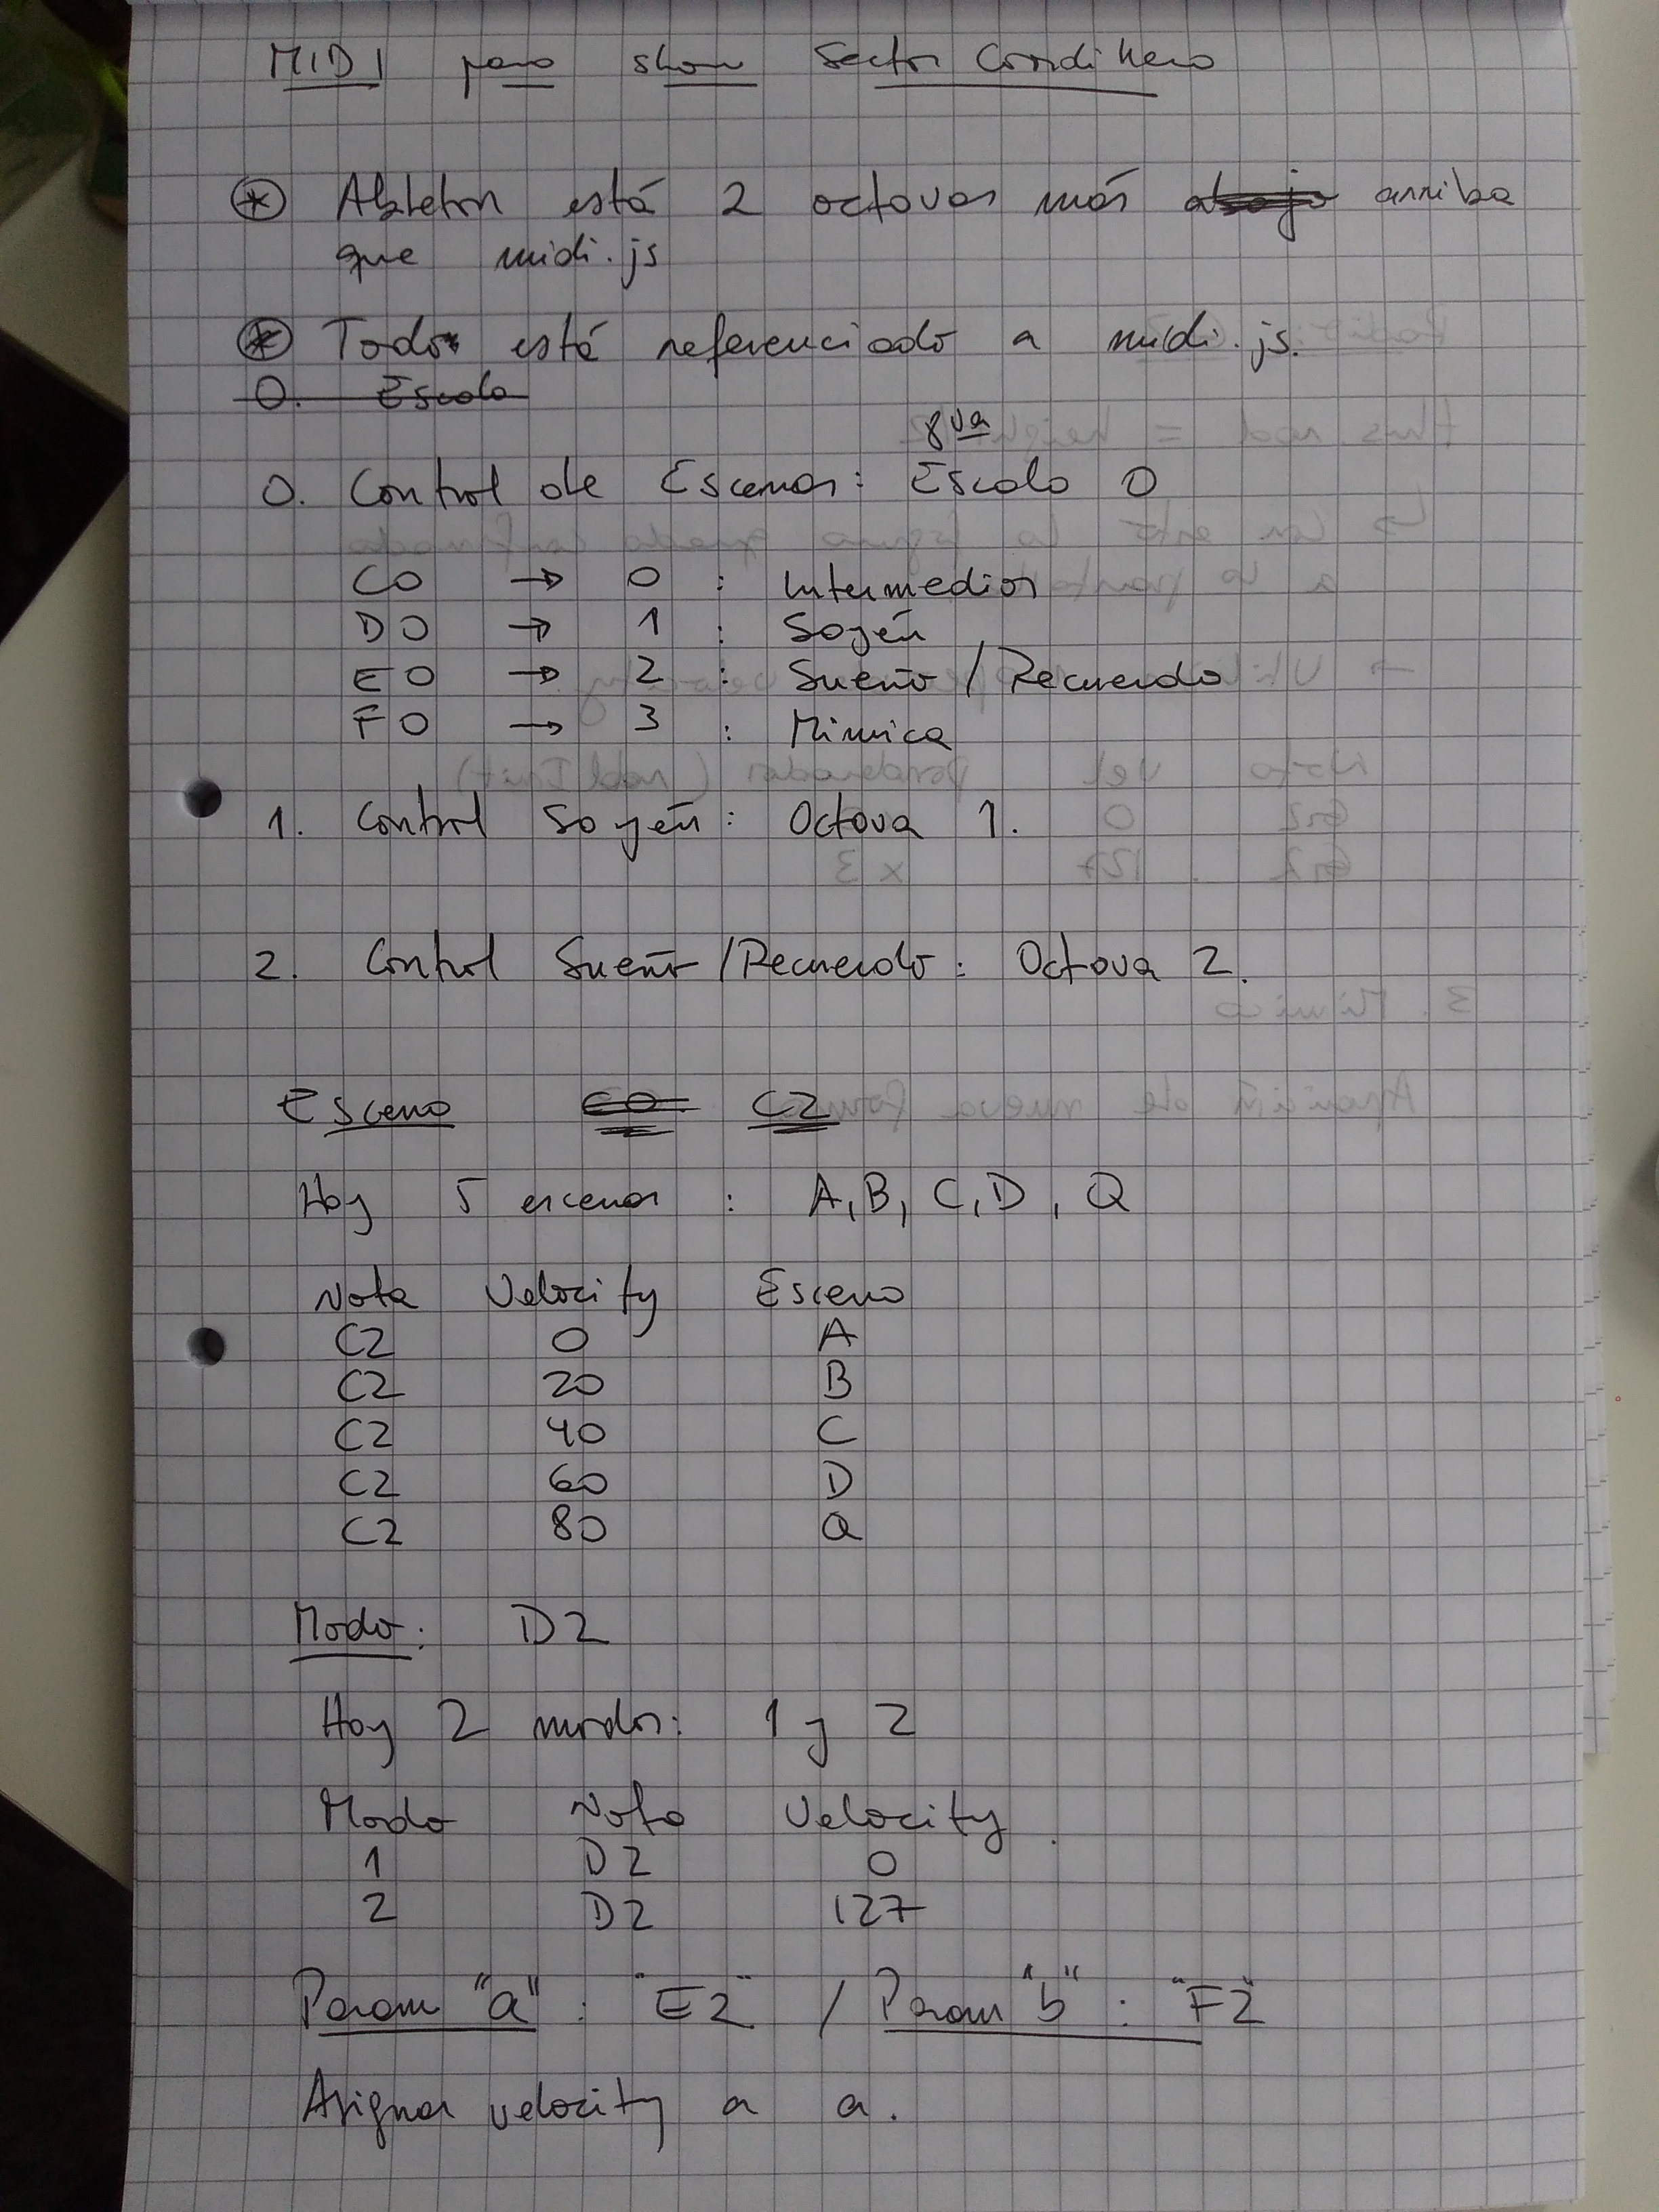 MIDI para show Sector Cordillera
* Ableton está 2 octavas más abajo arriba
que midi.js
* Todo está referenciado a midi.js.
0. Escala
8va
0. Control de Escenas: Escala 0
C0 → 0 : Intermedios
D0 → 1 :
E0 → 2 : Sueño / Recuerdo
F0 → 3 : Mímica
1. Control : Octava 1.
2. Control Sueño/Recuerdo: Octava 2.
Escena C0 C2
Hay 5 escenas : A, B, C, D, Q
Nota Velocity Escena
C2 0 A
C2 20 B
C2 40 C
C2 60 D
C2 80 Q
Modo: D2
Hay 2 modos: 1 y 2
Modo Nota Velocity.
1 D2 0
2 D2 127
Param "a" : "E2" / Param "b" : "F2"
Asignar velocity a a.